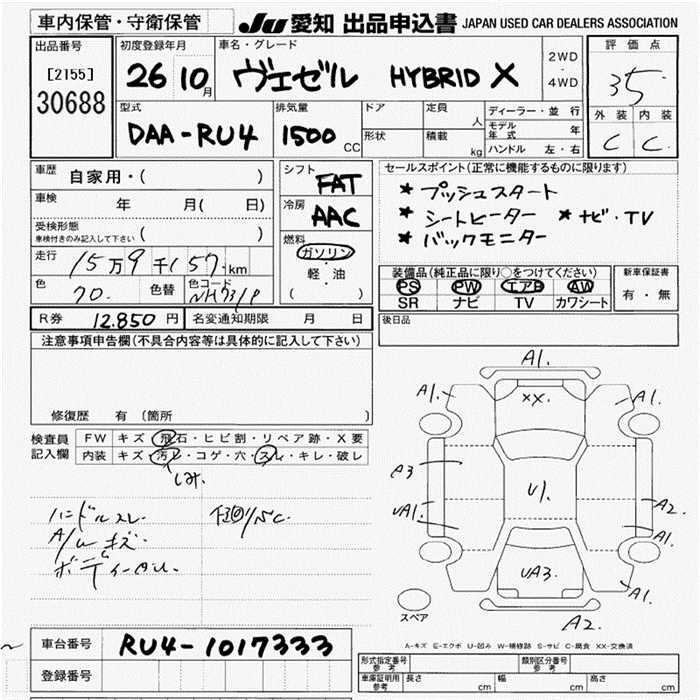 車内保管・守衛保管 JU 愛知 出品申込書 JAPAN USED CAR DEALERS ASSOCIATION
出品番号 [2155] 30688
初度登録年月 26 10月
車名・グレード ヴェゼル HYBRID X
2WD ・ 4WD
評価点 3.5
外装 内装 C C
型式 DAA-RU4
排気量 1500 CC
ドア 形状
定員 人 積載 kg
ディーラー・並行
モデル年式 年
ハンドル 左・右
車歴 自家用・( )
車検 年 月( 日)
受検形態 車検付きのみ記入して下さい ( )
走行 15万9千157km
色 70. 色替 色コード NH731P
シフト FAT
冷房 AAC
燃料 ガソリン・軽・油 ( )
セールスポイント(正常に機能するものに限ります)
★ プッシュスタート
★ シートヒーター ★ ナビ・TV
★ バックモニター
装備品(純正品に限り○をつけてください)
PS PW エアB AW
SR ナビ TV カワシート
新車保証書 有・無
R券 12.850円 名変通知期限 月 日
後日品
注意事項申告欄(不具合内容等は具体的に記入して下さい)
修復歴 有(箇所 )
検査員記入欄
FW キズ・飛石・ヒビ割・リペア跡・X要
内装 キズ・汚レ・コゲ・穴・スレ・キレ・破レ
しみ.
ハンドルスレ
A/Wキズ.
A1.
A1. XX. A1.
A3 U1.
UA1. A2.
A1.
UA3. A1.
A2.
スペア
A-キズ E-エクボ U-凹み W-補修跡 S-サビ C-腐食 XX-交換済
車台番号 RU4-1017333
登録番号
形式指定番号 参考 類別区分番号 参考
車庫証明用 参考 長さ cm 幅 cm 高さ cm